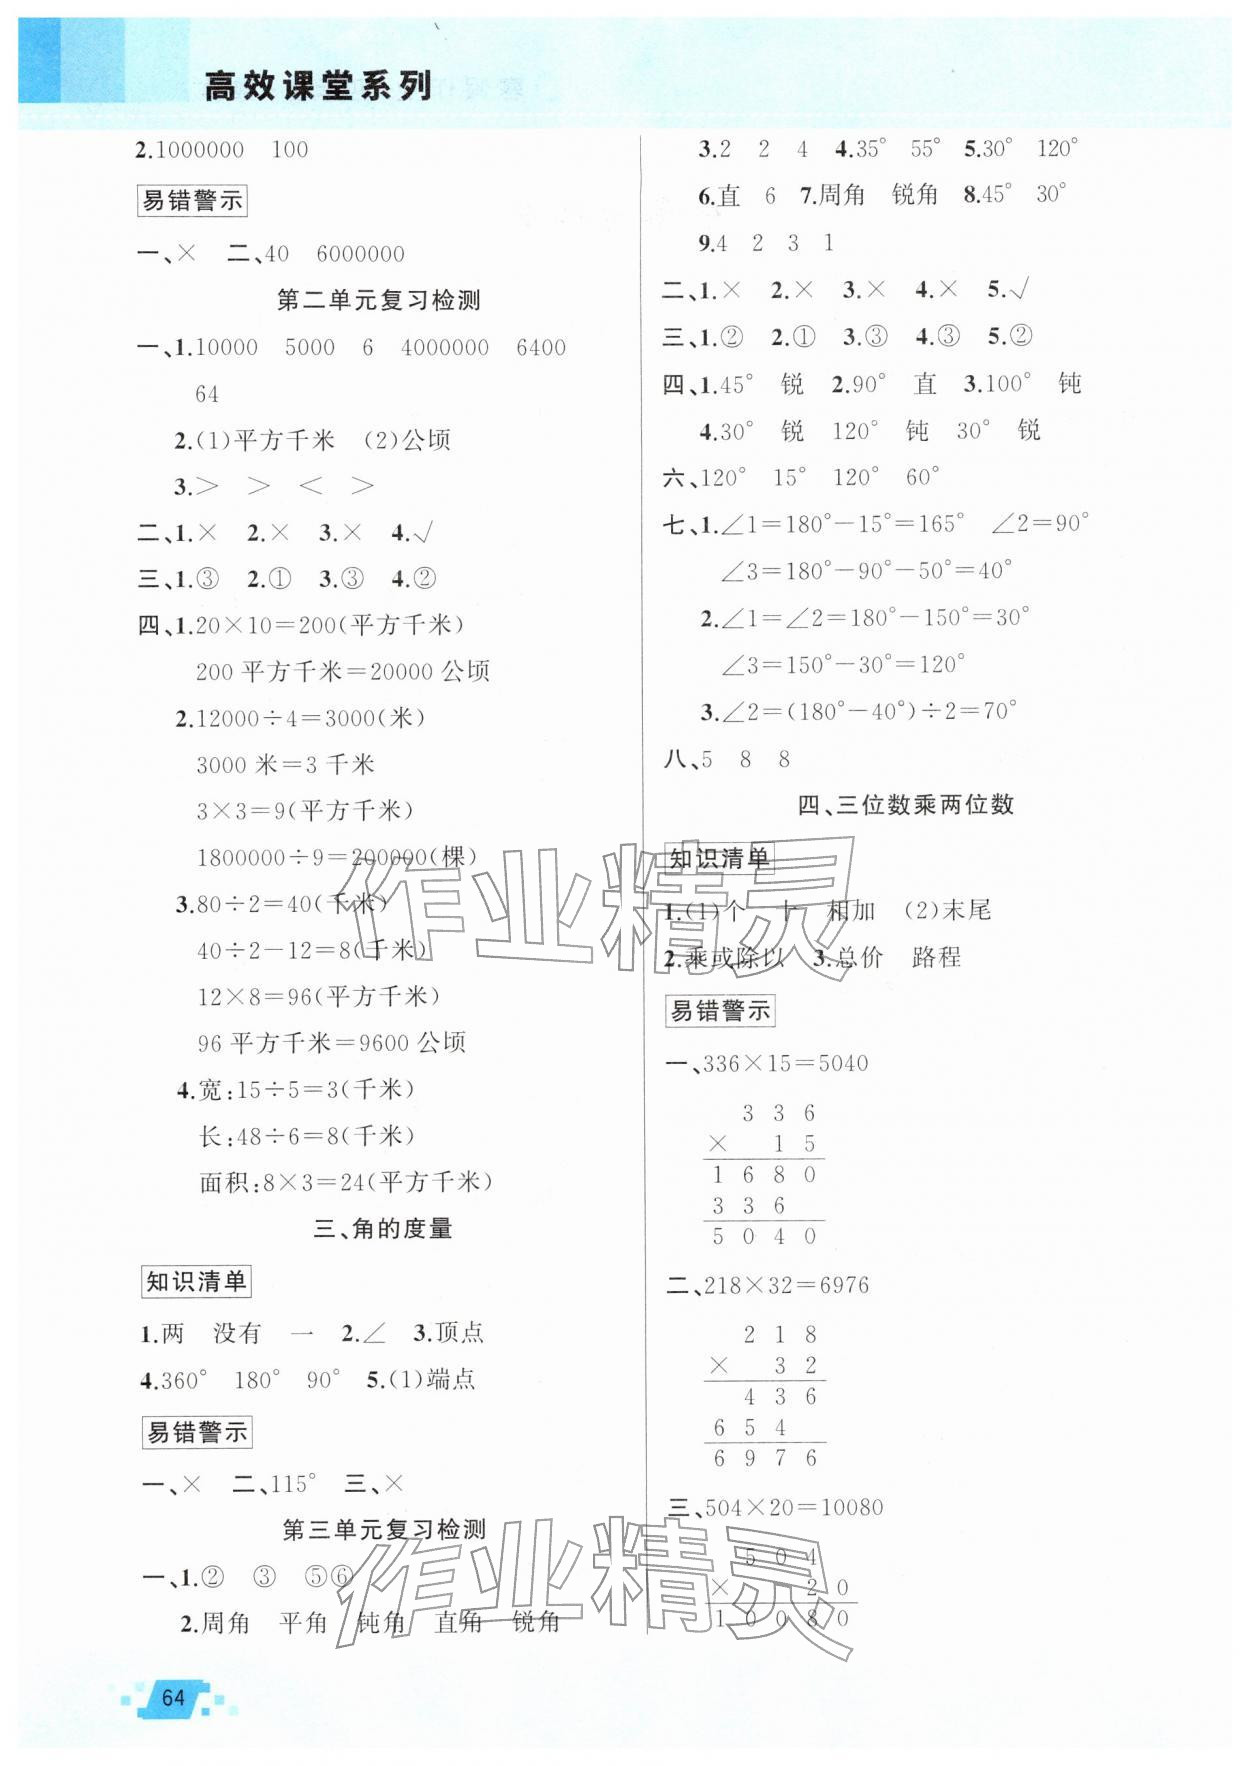 高效课堂系列
2.1000000 100
易错警示
一、× 二、40 6000000
第二单元复习检测
一、1.10000 5000 6 4000000 6400
64
2.(1)平方千米 (2)公顷
3.> > < >
二、1.× 2.× 3.× 4.√
三、1.③ 2.① 3.③ 4.②
四、1.20×10=200(平方千米)
200平方千米=20000公顷
2.12000÷4=3000(米)
3000米=3千米
3×3=9(平方千米)
1800000÷9=200000(棵)
3.80÷2=40(千米)
40÷2-12=8(千米)
12×8=96(平方千米)
96平方千米=9600公顷
4.宽:15÷5=3(千米)
长:48÷6=8(千米)
面积:8×3=24(平方千米)
三、角的度量
知识清单
1.两 没有 一 2.∠ 3.顶点
4.360° 180° 90° 5.(1)端点
易错警示
一、× 二、115° 三、×
第三单元复习检测
一、1.② ③ ⑤⑥
2.周角 平角 钝角 直角 锐角
64
3.2 2 4 4.35° 55° 5.30° 120°
6.直 6 7.周角 锐角 8.45° 30°
9.4 2 3 1
二、1.× 2.× 3.× 4.× 5.√
三、1.② 2.① 3.③ 4.③ 5.②
四、1.45° 锐 2.90° 直 3.100° 钝
4.30° 锐 120° 钝 30° 锐
六、120° 15° 120° 60°
七、1.∠1=180°-15°=165° ∠2=90°
∠3=180°-90°-50°=40°
2.∠1=∠2=180°-150°=30°
∠3=150°-30°=120°
3.∠2=(180°-40°)÷2=70°
八、5 8 8
四、三位数乘两位数
知识清单
1.(1)个 十 相加 (2)末尾
2.乘或除以 3.总价 路程
易错警示
一、336×15=5040
3 3 6
× 1 5
1 6 8 0
3 3 6
5 0 4 0
二、218×32=6976
2 1 8
× 3 2
4 3 6
6 5 4
6 9 7 6
三、504×20=10080
5 0 4
× 2 0
1 0 0 8 0
作业精灵
作业精灵